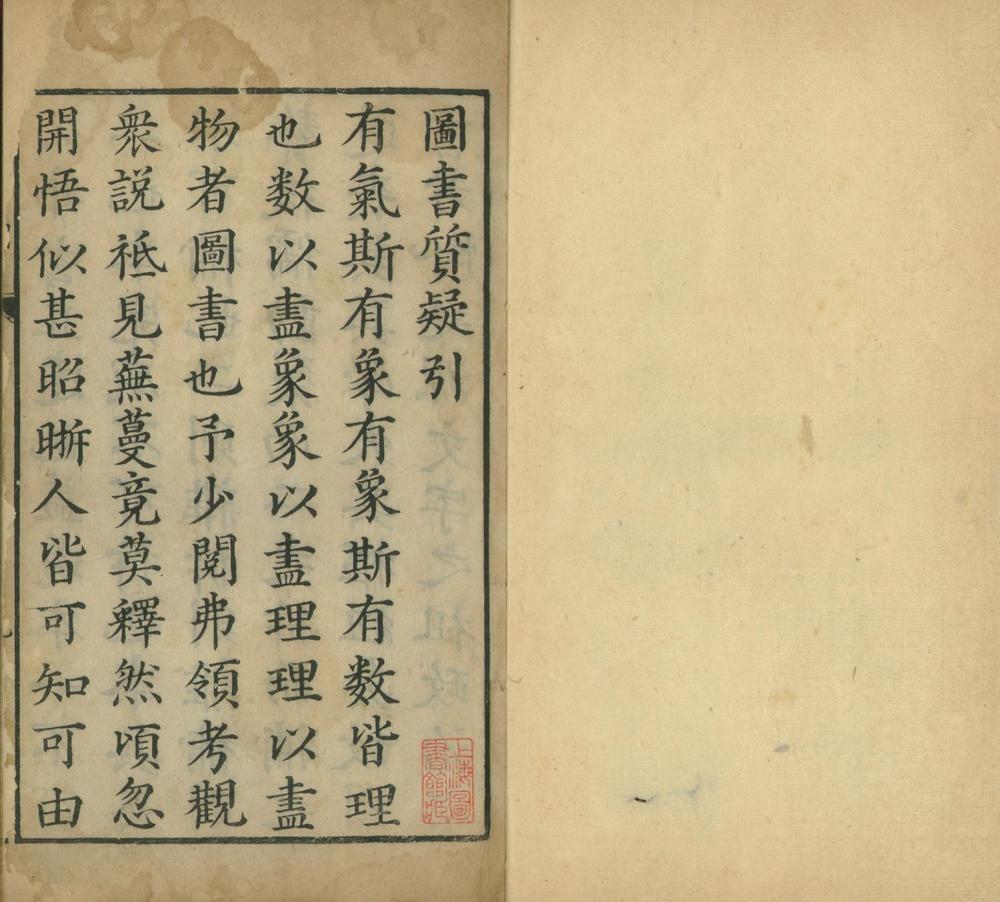 圖書質疑引
有氣斯有象有象斯有数皆理
也数以盡象象以盡理理以盡
物者圖書也予少閱弗領考觀
衆説祗見蕪蔓竟莫釋然頃忽
開悟似甚昭晣人皆可知可由
上海圖
書館藏